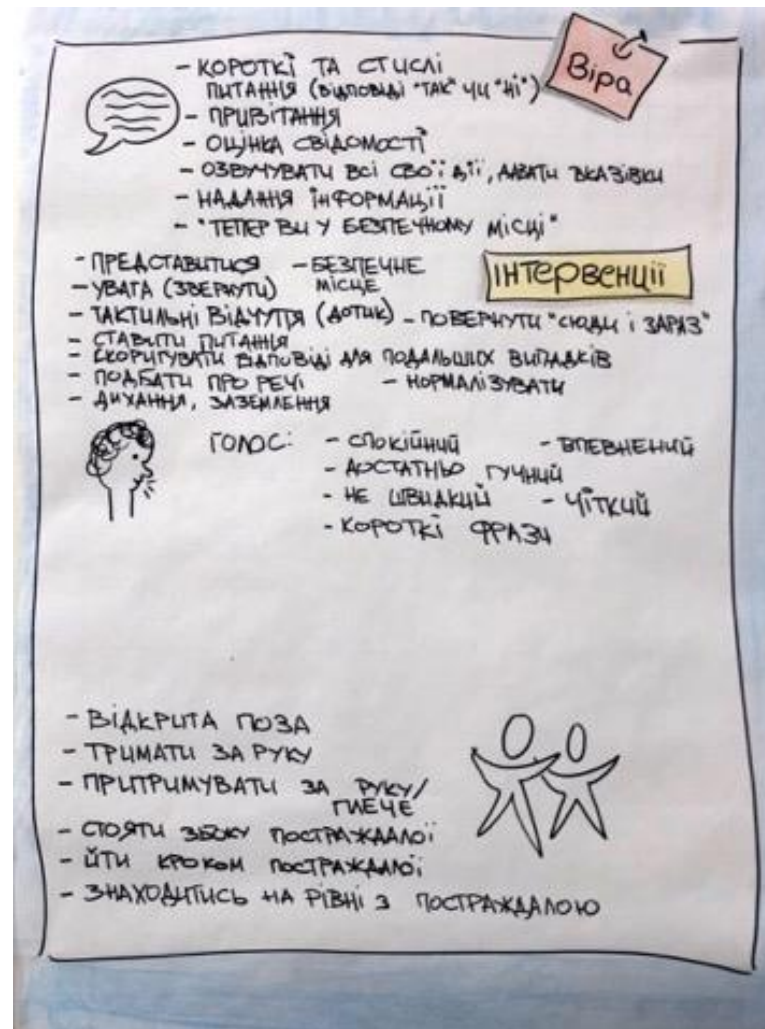 Віра
- КОРОТКІ ТА СТИСЛІ
ПИТАННЯ (ВІДПОВІДІ "ТАК" ЧИ "НІ")
- ПРИВІТАННЯ
- ОЦІНКА СВІДОМОСТІ
- ОЗВУЧУВАТИ ВСІ СВОЇ ДІЇ, ДАВАТИ ВКАЗІВКИ
- НАДАННЯ ІНФОРМАЦІЇ
- "ТЕПЕР ВИ У БЕЗПЕЧНОМУ МІСЦІ"
ІНТЕРВЕНЦІЇ
- ПРЕДСТАВИТИСЯ - БЕЗПЕЧНЕ
- УВАГА (ЗВЕРНУТИ) МІСЦЕ
- ТАКТИЛЬНІ ВІДЧУТТЯ (ДОТИК) - ПОВЕРНУТИ "СЮДИ І ЗАРАЗ"
- СТАВИТИ ПИТАННЯ
- СКОРИГУВАТИ ВІДПОВІДІ ДЛЯ ПОДАЛЬШИХ ВИПАДКІВ
- ПОДБАТИ ПРО РЕЧІ - НОРМАЛІЗУВАТИ
- ДИХАННЯ, ЗАЗЕМЛЕННЯ
ГОЛОС: - СПОКІЙНИЙ - ВПЕВНЕНИЙ
- ДОСТАТНЬО ГУЧНИЙ
- НЕ ШВИДКИЙ - ЧІТКИЙ
- КОРОТКІ ФРАЗИ
- ВІДКРИТА ПОЗА
- ТРИМАТИ ЗА РУКУ
- ПРИТРИМУВАТИ ЗА РУКУ/
ПЛЕЧЕ
- СТОЯТИ ЗБОКУ ПОСТРАЖДАЛОЇ
- ЙТИ КРОКОМ ПОСТРАЖДАЛОЇ
- ЗНАХОДИТИСЬ НА РІВНІ З ПОСТРАЖДАЛОЮ